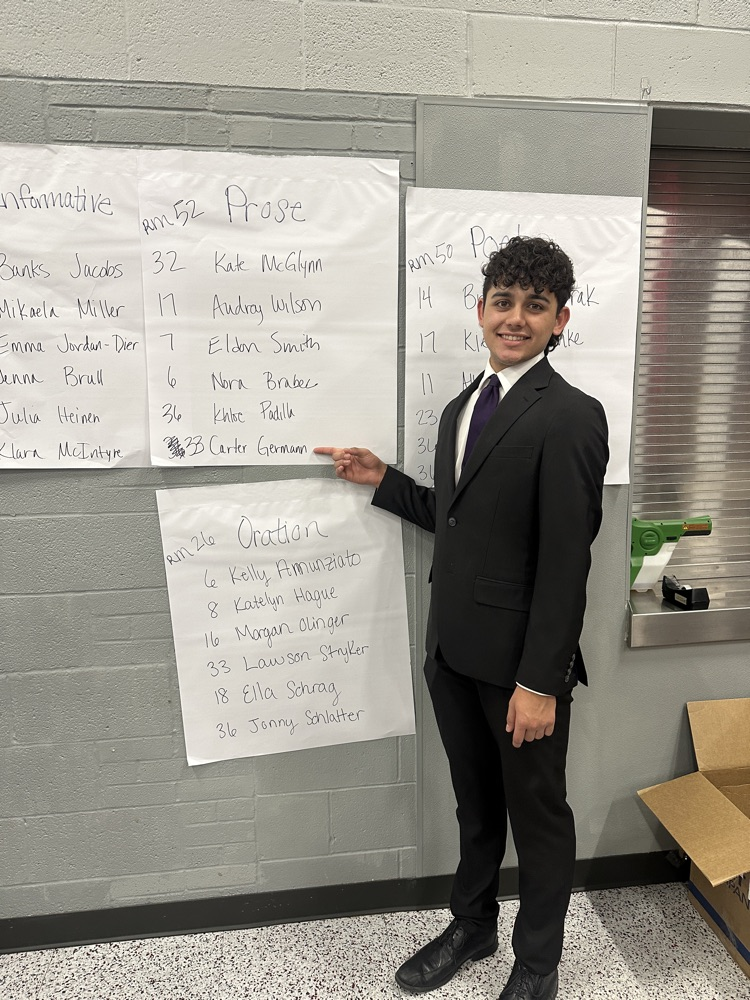 Informative
Banks Jacobs
Mikaela Miller
Emma Jordan-Dier
Jenna Brull
Julia Heinen
Klara McIntyre
RM 52 Prose
32 Kate McGlynn
17 Audrey Wilson
7 Eldon Smith
6 Nora Brabec
36 Khloe Padilla
33 Carter Germann
RM 50
14
17
11
23
RM 26 Oration
6 Kelly Annunziato
8 Katelyn Hague
16 Morgan Olinger
33 Lawson Stryker
18 Ella Schrag
36 Jonny Schlatter